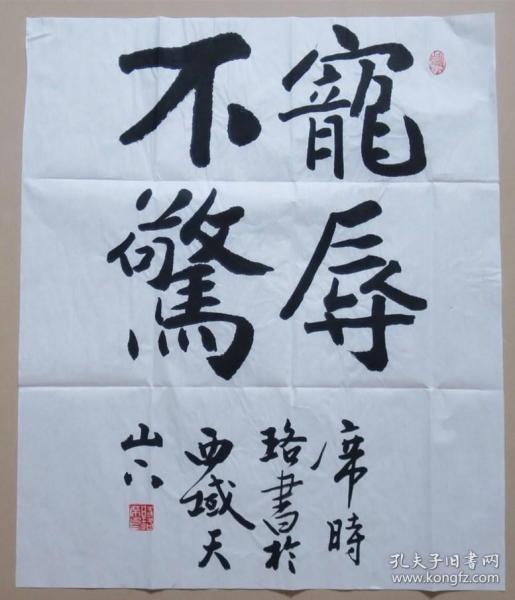 寵辱
不驚
席時
珞書於
西域天
山下
孔夫子旧书网
www.kongfz.com